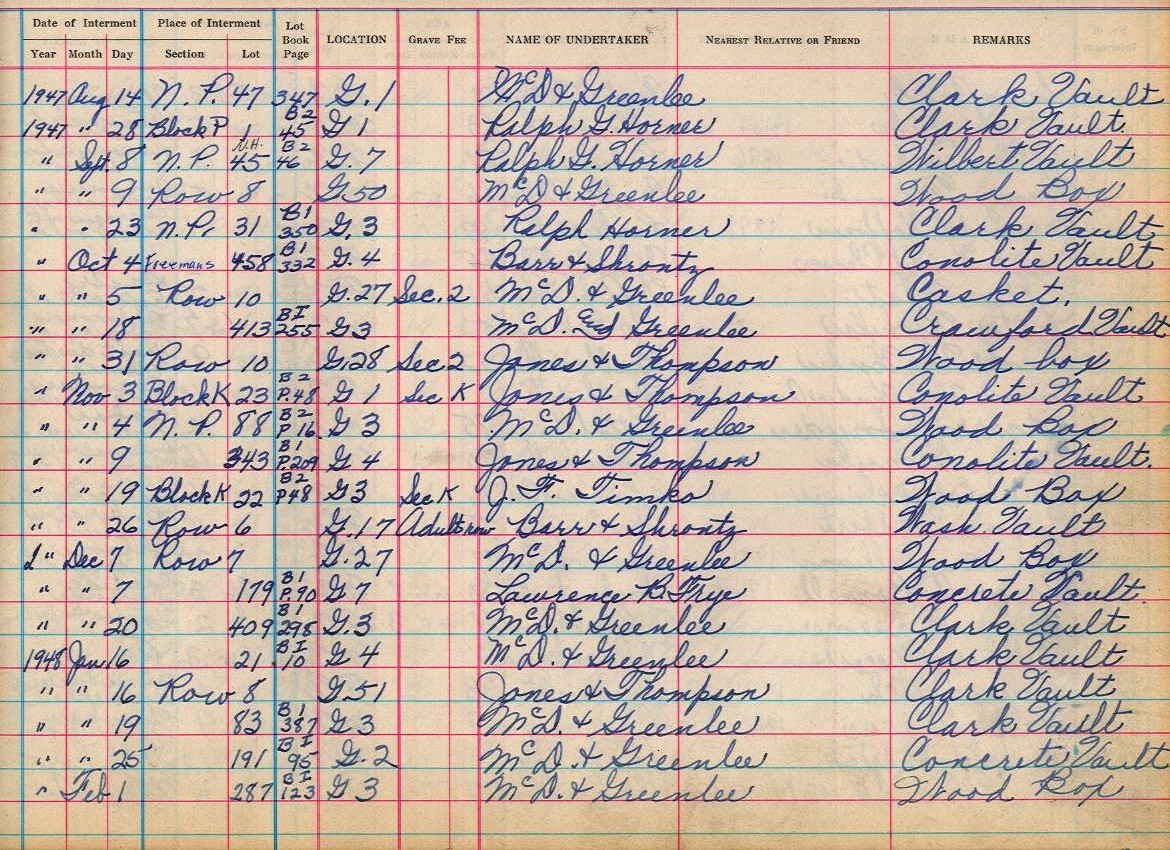 Date of Interment Place of Interment Lot Book Page LOCATION GRAVE FEE NAME OF UNDERTAKER NEAREST RELATIVE OR FRIEND REMARKS
Year Month Day Section Lot
1947 Aug 14 N. P. 47 347 G. 1 McD & Greenlee Clark Vault
1947 " 28 Block P 1 B2 45 G 1 Ralph G. Horner Clark Vault.
" Sept. 8 N. P. N.H. 45 B2 46 G. 7 Ralph G. Horner Wilbert Vault
" " 9 Row 8 G.50 McD & Greenlee Wood Box
" " 23 N. P. 31 B1 350 G. 3 Ralph Horner Clark Vault
" Oct 4 Freemans 458 B1 332 G. 4 Barr & Shrontz Conolite Vault
" " 5 Row 10 G. 27 Sec. 2 McD. & Greenlee Casket.
" " 18 413 BI 255 G 3 McD. And Greenlee Crawford Vault
" " 31 Row 10 G.28 Sec 2 Jones & Thompson Wood box
" Nov 3 Block K 23 B2 P.48 G 1 Sec K Jones & Thompson Conolite Vault
" " 4 N. P. 88 B2 P 16 G 3 McD. & Greenlee Wood Box
" " 9 343 B1 P.209 G 4 Jones & Thompson Conolite Vault.
" " 19 Block K 22 B2 P48 G3 Sec K J. F. Timko Wood Box
" " 26 Row 6 G.17 Adult row Barr & Shrontz Wash Vault
" Dec 7 Row 7 G.27 McD. & Greenlee Wood Box
" " 7 179 B1 P.90 G 7 Lawrence B. Frye Concrete Vault.
" " 20 409 B1 298 G 3 McD. & Greenlee Clark Vault
1948 Jan 16 21 BI 10 G 4 McD. & Greenlee Clark Vault
" " 16 Row 8 G.51 Jones & Thompson Clark Vault
" " 19 83 B1 387 G 3 McD. & Greenlee Clark Vault
" " 25 191 BI 95 G. 2 McD. & Greenlee Concrete Vault
" Feb 1 287 BI 123 G 3 McD. & Greenlee Wood Box